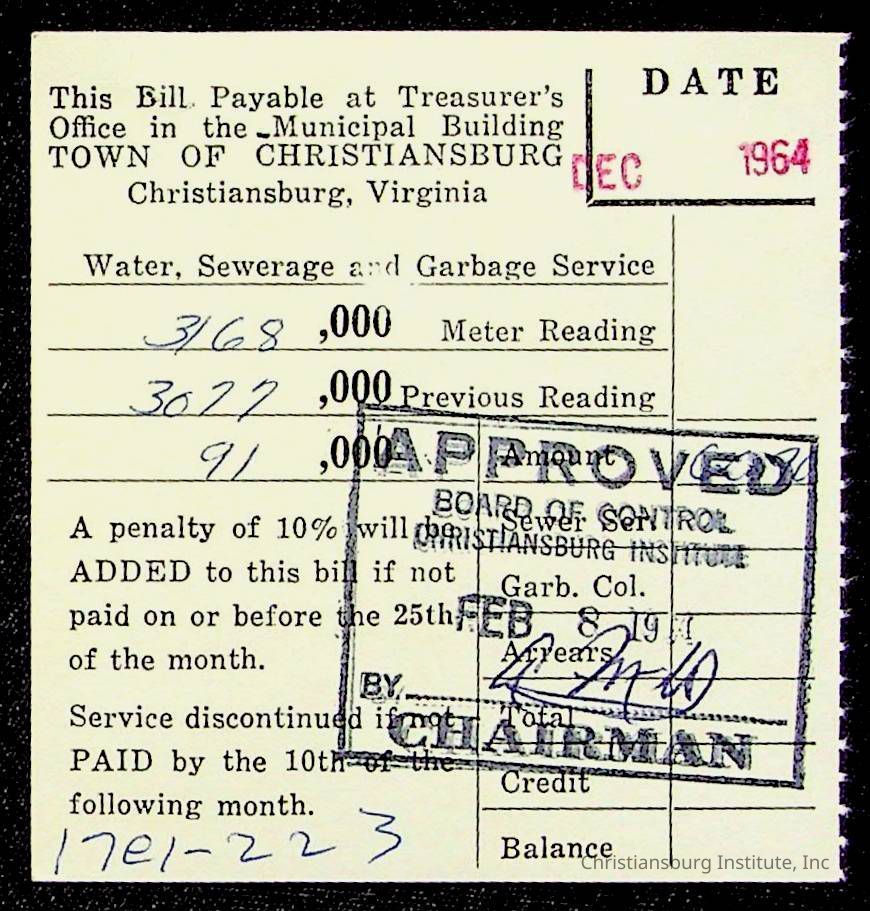 This Bill Payable at Treasurer's
Office in the Municipal Building
TOWN OF CHRISTIANSBURG
Christiansburg, Virginia
DATE
DEC 1964
Water, Sewerage and Garbage Service
3168 ,000 Meter Reading
3077 ,000 Previous Reading
91 ,000 Amount
APPROVED
BOARD OF CONTROL
CHRISTIANSBURG INSTITUTE
FEB 8 19
BY
CHAIRMAN
A penalty of 10% will be
ADDED to this bill if not
paid on or before the 25th
of the month.
Service discontinued if not
PAID by the 10th of the
following month.
Sewer Ser.
Garb. Col.
Arrears
Total
Credit
Balance
17e1-223
Christiansburg Institute, Inc